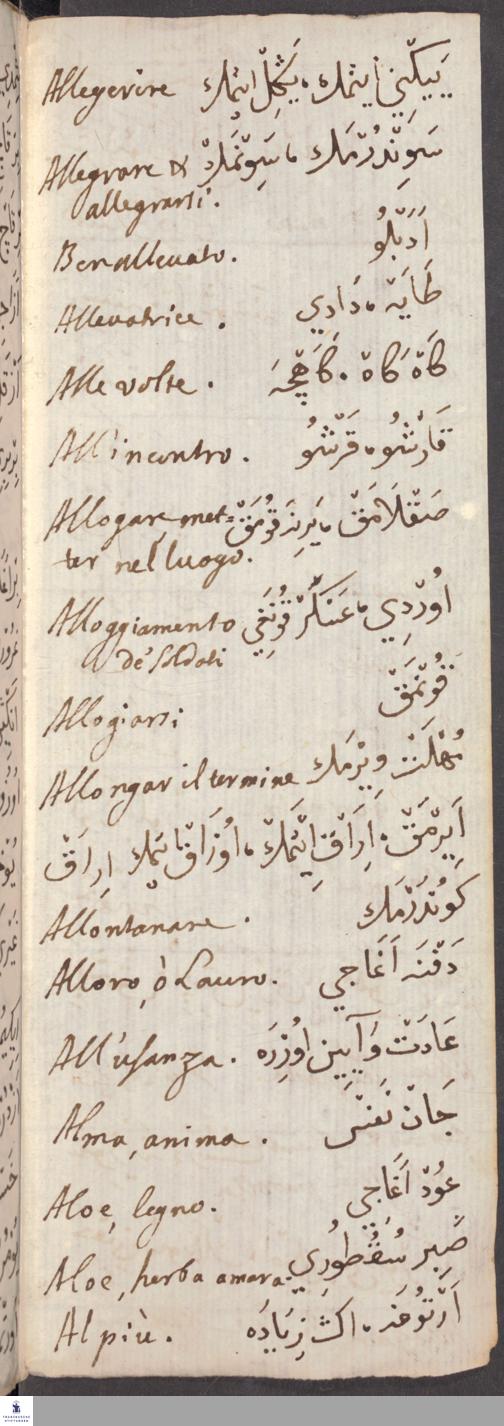 Allegerire يَيِيكْنِي اِيتْمَك ، يَڭِلْ اِتْمَك
Allegrare & سَوِنْدُرْمَك ، سَوِنْمَك
allegrarsi.
Benalleuato. اَدَبْلُو
Alleuatrice. طَايَه ، دَادِي
Alle volte. كَاهْ كَاهْ ، كَاهِيجَه
All'incontro. قَارْشُو ، قَرْشُو
Allogare, met= صَقْلَامَقْ ، يَرِنَه قُومَقْ
ter nel luogo.
Alloggiamento اُورْدِي ، عَسْكَرْ قُونَغِي
de' Soldati
Allogiarsi قُونْمَقْ
Allongar il termine مُهْلَتْ وِيرْمَك
اَيِرْمَقْ ، اِرَاقْ اِتْمَكْ ، اُوزَاقْ اتمك اِرَاقْ
Allontanare. كَونْدَرْمَك
Alloro, ò Lauro. دَفْنَه اَغَاجِي
All'usanza. عَادَتْ وَآيِينْ اُوزِرَه
Alma, anima. جَانْ نَفَسْ
Aloe, legno. عُودْ اَغَاجِي
Aloe, herba amara. صَبِر سُقُطُورِي
Al più. اَرْتُوخَه ، اك زِيَادَه